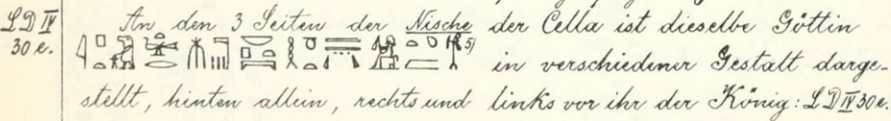 LD IV An den 3 Seiten der Nische der Cella ist dieselbe Göttin
30 e. 5) in verschiedener Gestalt darge-
stellt, hinten allein, rechts und links vor ihr der König: LD IV 30e.